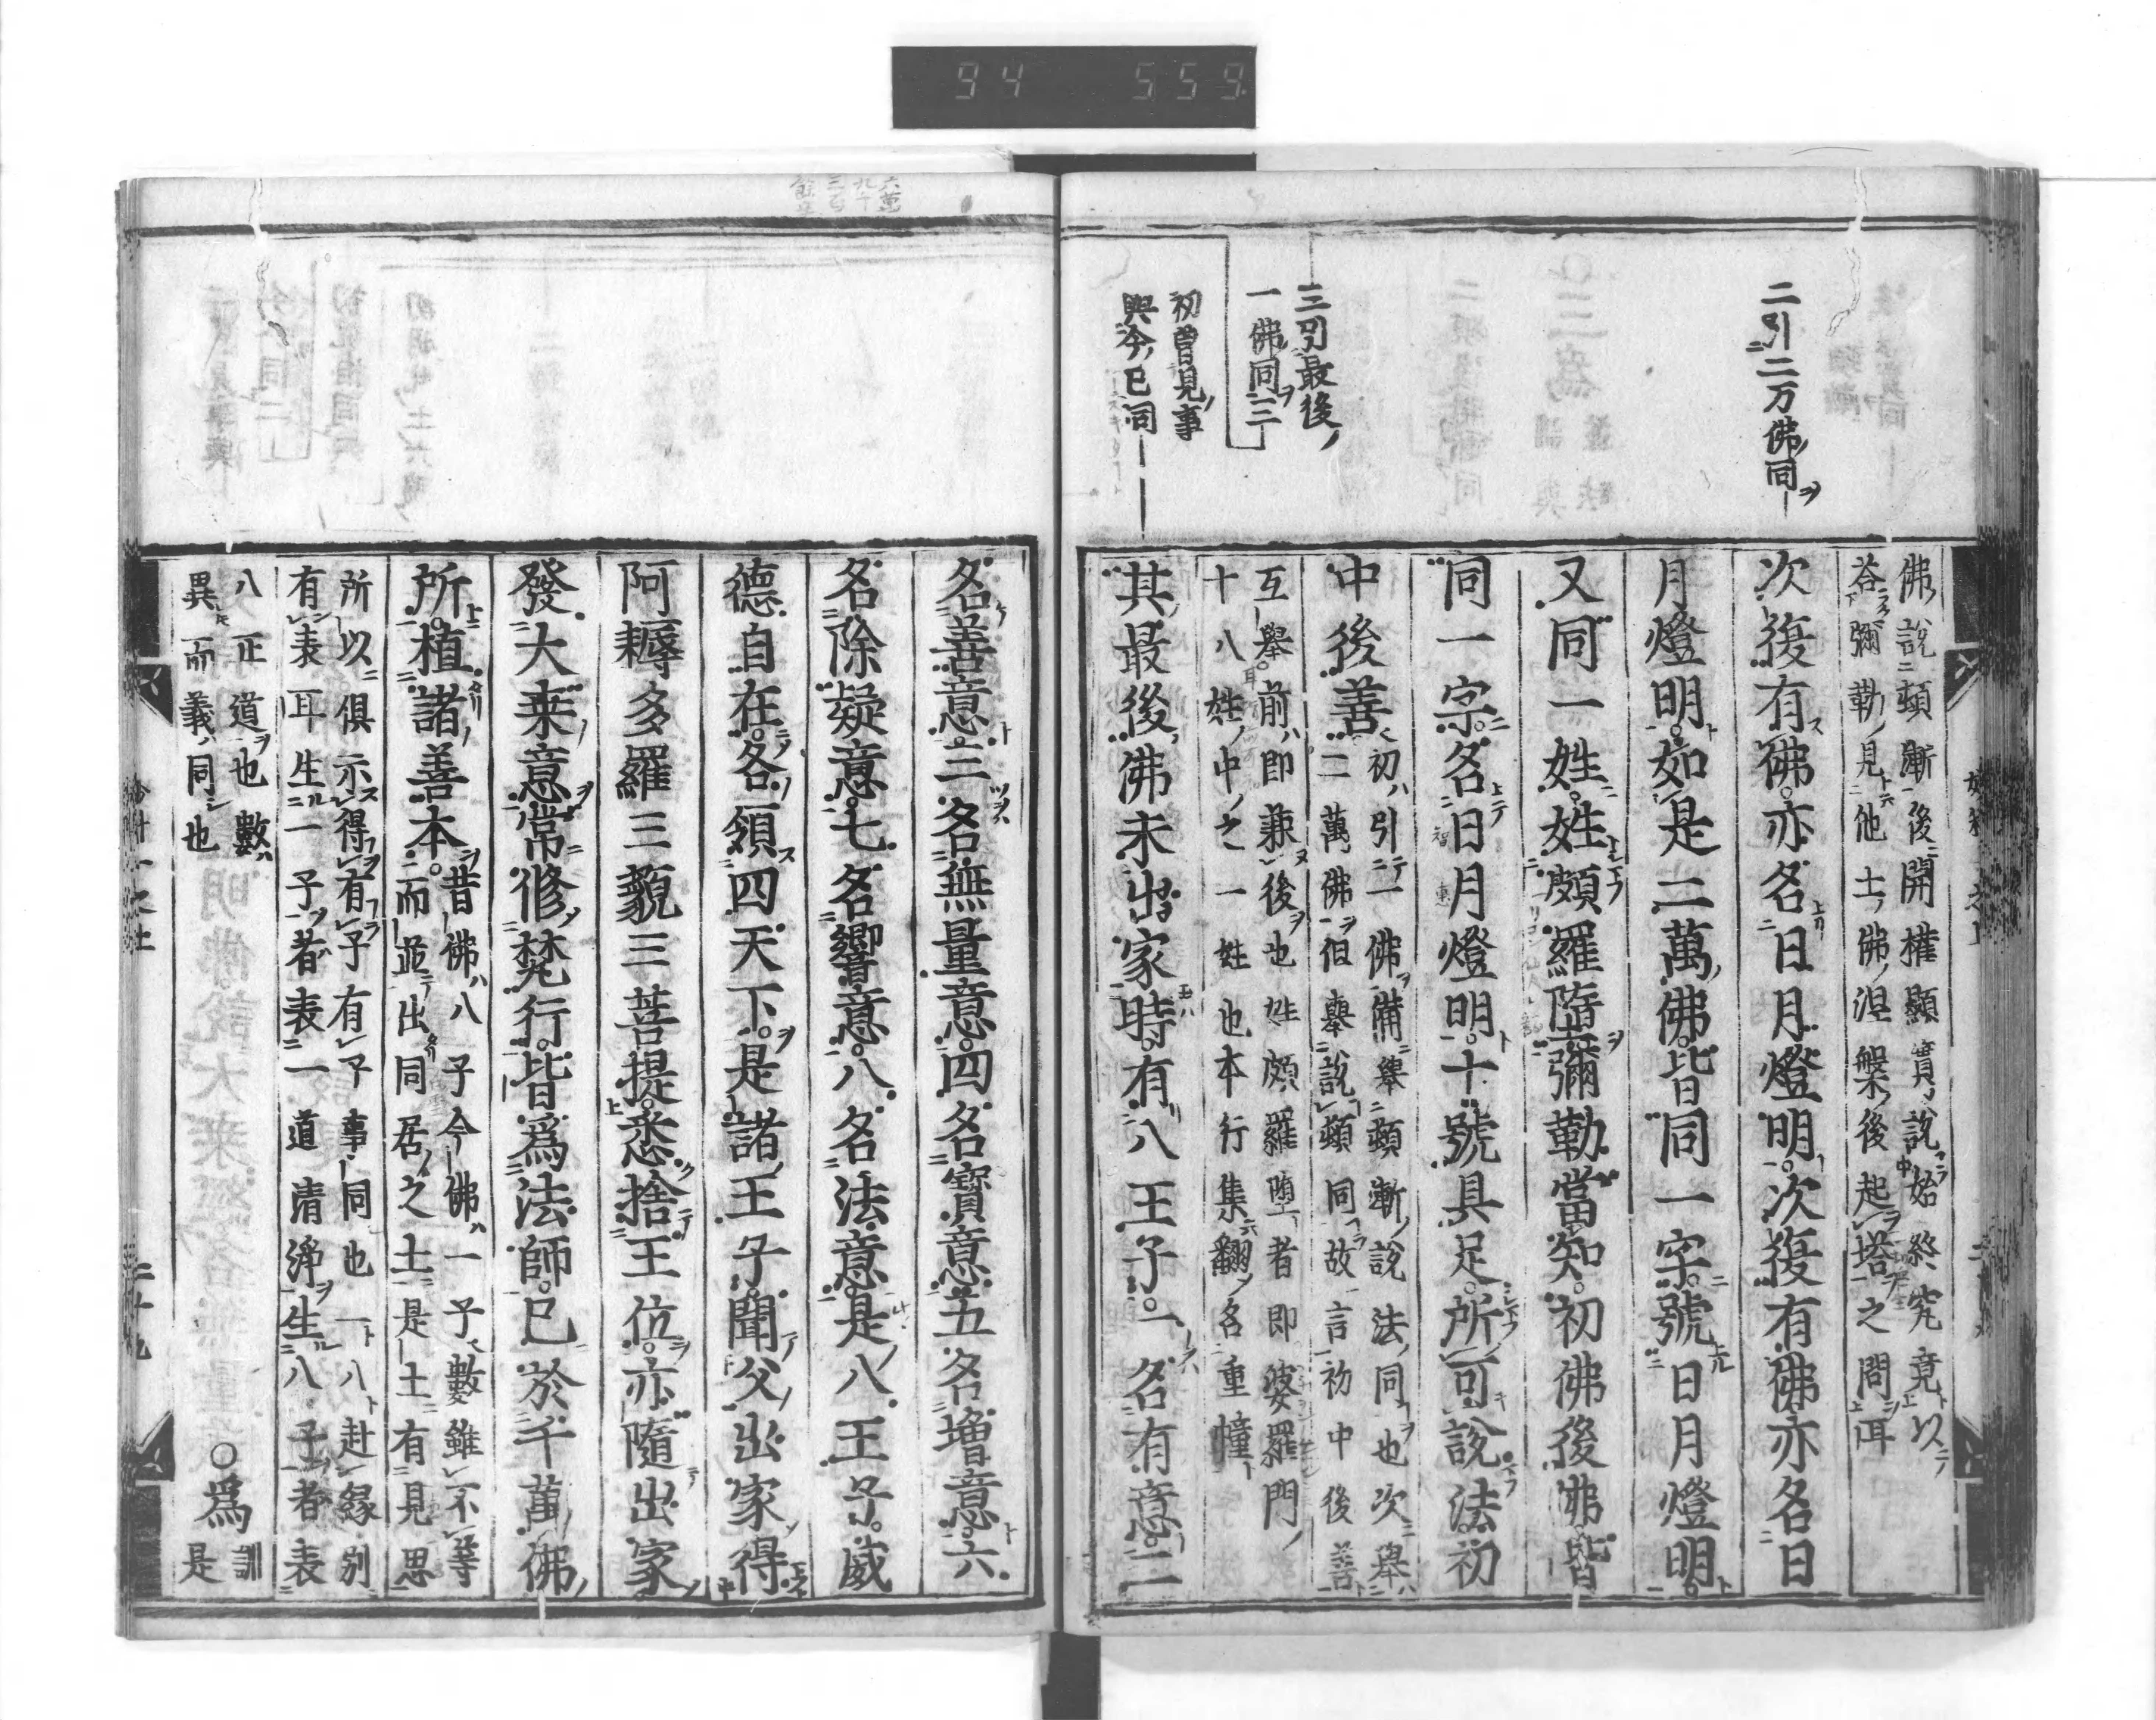 94 559
二引二万佛同
三引最後
一佛同三
初曽見事
與今已同
佛説頓漸後開權顯實説始終究竟以
荅彌勒見他土佛涅槃後起塔之問耳
次復有佛亦名日月燈明次復有佛亦名日
月燈明如是二萬佛皆同一字號日月燈明
又同一姓姓頗羅墮彌勒當知初佛後佛皆
同一字名日月燈明十號具足所可説法初
中後善
初引一佛備舉頓漸説法同也次舉
二萬佛但舉説頓同故言初中後善
互舉前即兼後也姓頗羅墮者即婆羅門
十八姓中之一姓也本行集翻名重幢
其最後佛未出家時有八王子一名有意二
六萬
九千
三百
餘字
名善意三名無量意四名寶意五名增意六
名除疑意七名響意八名法意是八王子威
德自在各領四天下是諸王子聞父出家得
阿耨多羅三藐三菩提悉捨王位亦隨出家
發大乘意常修梵行皆爲法師已於千萬佛
所植諸善本
昔佛八子今佛一子數雖不等
而並出同居之土是土有見思
所以俱示得有子有子事同也一八赴縁別
有表耳生一子者表一道清淨生八子者表
八正道也數
異而義同也
○爲
訓
是